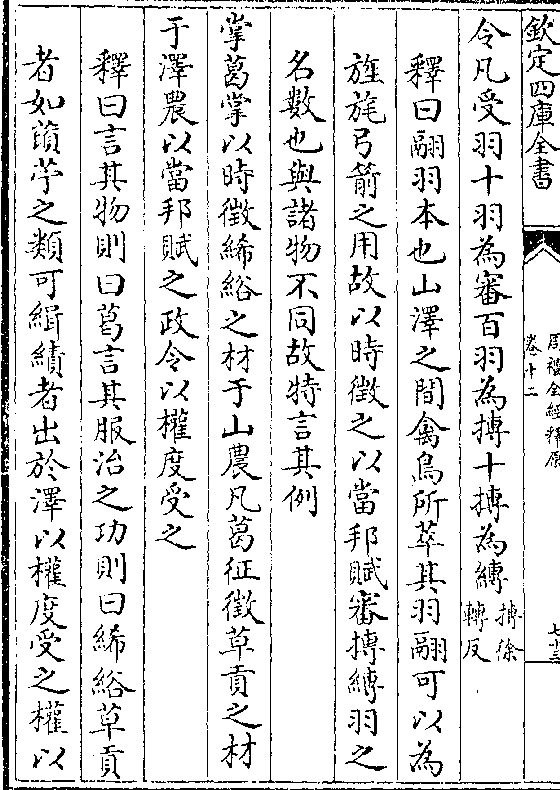 欽定四庫全書
周禮全經釋原
卷十二
七十三
令凡受羽十羽為審百羽為摶十摶為縳摶徐轉反
釋曰翮羽本也山澤之間禽鳥所萃其羽翮可以為
旌旄弓箭之用故以時徵之以當邦賦審摶縳羽之
名數也與諸物不同故特言其例
掌葛掌以時徵絺綌之材于山農凡葛征徵草貢之材
于澤農以當邦賦之政令以權度受之
釋曰言其物則曰葛言其服治之功則曰絺綌草貢
者如䔛苧之類可緝績者出於澤以權度受之權以